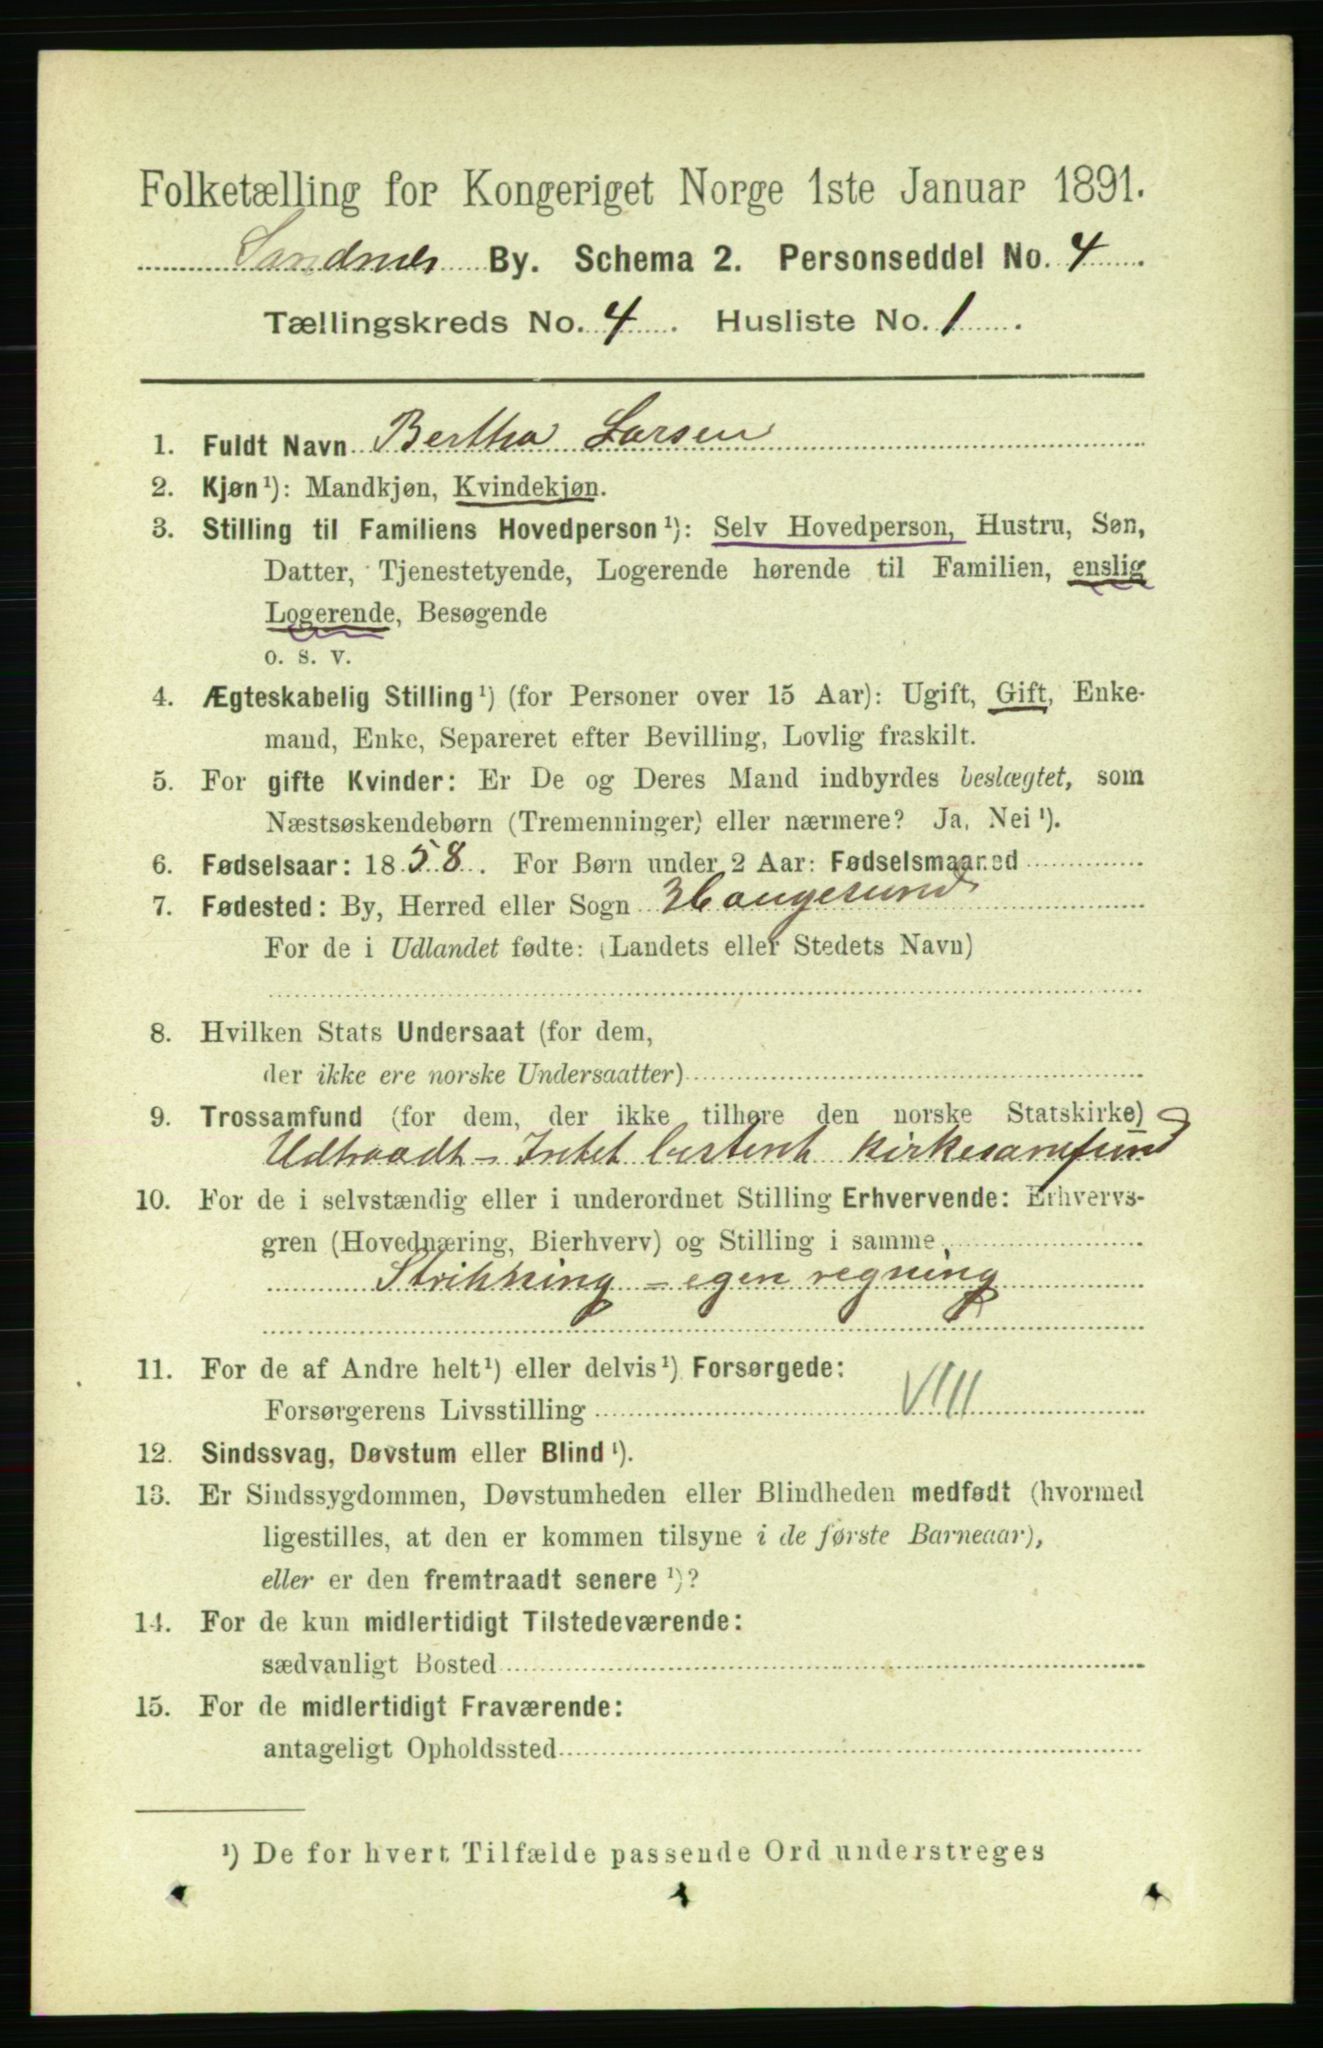 Folketælling for Kongeriget Norge 1ste Januar 1891.
Sandnes By. Schema 2. Personseddel No. 4
Tællingskreds No. 4. Husliste No. 1.
1. Fuldt Navn Bertha Larsen
2. Kjøn¹): Mandkjøn, Kvindekjøn.
3. Stilling til Familiens Hovedperson¹): Selv Hovedperson, Hustru, Søn,
Datter, Tjenestetyende, Logerende hørende til Familien, enslig
Logerende, Besøgende
o. s. v.
4. Ægteskabelig Stilling¹) (for Personer over 15 Aar): Ugift, Gift, Enke-
mand, Enke, Separeret efter Bevilling, Lovlig fraskilt.
5. For gifte Kvinder: Er De og Deres Mand indbyrdes beslægtet, som
Næstsøskendebørn (Tremenninger) eller nærmere? Ja, Nei¹).
6. Fødselsaar: 1858. For Børn under 2 Aar: Fødselsmaaned
7. Fødested: By, Herred eller Sogn Haugesund
For de i Udlandet fødte: (Landets eller Stedets Navn)
8. Hvilken Stats Undersaat (for dem,
der ikke ere norske Undersaatter)
9. Trossamfund (for dem, der ikke tilhøre den norske Statskirke)
Udtraadt - Intet bestemt Kirkesamfund
10. For de i selvstændig eller i underordnet Stilling Erhvervende: Erhvervs-
gren (Hovednæring, Bierhverv) og Stilling i samme
Strikning - egen regning
11. For de af Andre helt¹) eller delvis¹) Forsørgede:
Forsørgerens Livsstilling VIII
12. Sindssvag, Døvstum eller Blind¹).
13. Er Sindssygdommen, Døvstumheden eller Blindheden medfødt (hvormed
ligestilles, at den er kommen tilsyne i de første Barneaar),
eller er den fremtraadt senere¹)?
14. For de kun midlertidigt Tilstedeværende:
sædvanligt Bosted
15. For de midlertidigt Fraværende:
antageligt Opholdssted
¹) De for hvert Tilfælde passende Ord understreges